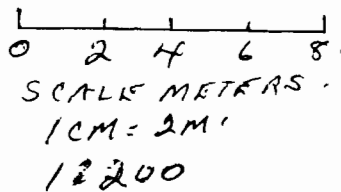 0 2 4 6 8
SCALE METERS.
1CM = 2M'
1:200